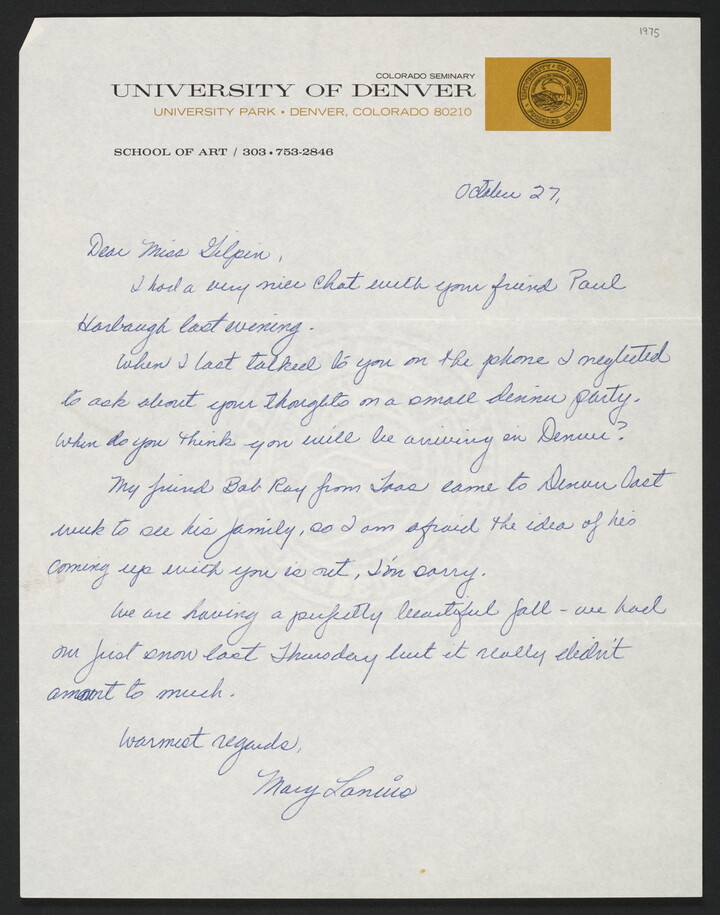 1975
COLORADO SEMINARY
UNIVERSITY OF DENVER
UNIVERSITY PARK • DENVER, COLORADO 80210
SCHOOL OF ART / 303 • 753-2846
October 27,
Dear Miss Gilpin,
I had a very nice chat with your friend Paul
Harbaugh last evining.
When I last talked to you on the phone I neglected
to ask about your thoughts on a small dinner party.
When do you think you will be arriving in Denver?
My friend Bob Ray from Taos came to Denver last
week to see his family, so I am afraid the idea of his
coming up with you is out, I'm sorry.
We are having a perfectly beautiful fall - we had
our first snow last Thursday but it really didn't
amount to much.
Warmest regards,
Mary Lanius